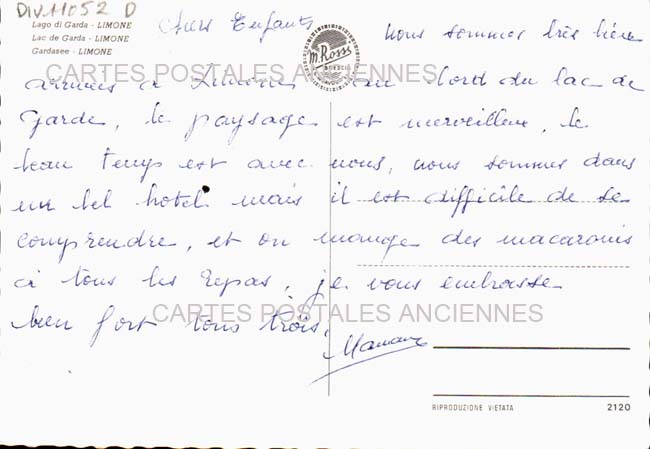 DIV11052 D
Lago di Garda - LIMONE
Lac de Garda - LIMONE
Gardasee - LIMONE
M. Rossi
BRESCIA
CARTES POSTALES ANCIENNES
Chers Enfants
nous sommes très bien
arrivées à Limone au bord du lac de
Garde, le paysage est merveilleux, le
beau temps est avec nous, nous sommes dans
un bel hotel mais il est difficile de se
comprendre, et on mange des macaronis
à tous les repas, je vous embrasse
bien fort tous trois.
CARTES POSTALES ANCIENNES
Maman
RIPRODUZIONE VIETATA 2120